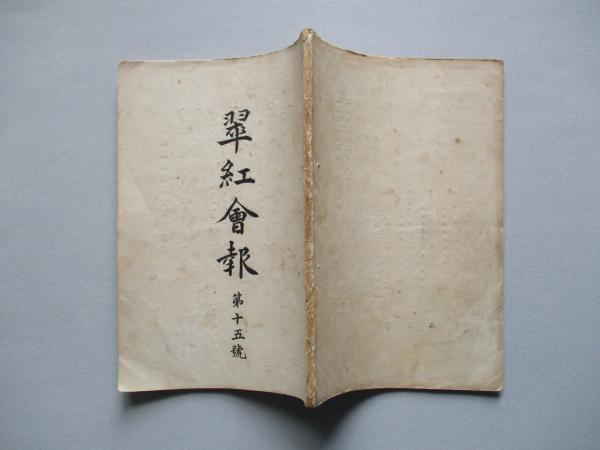 翠紅會報
第十五號